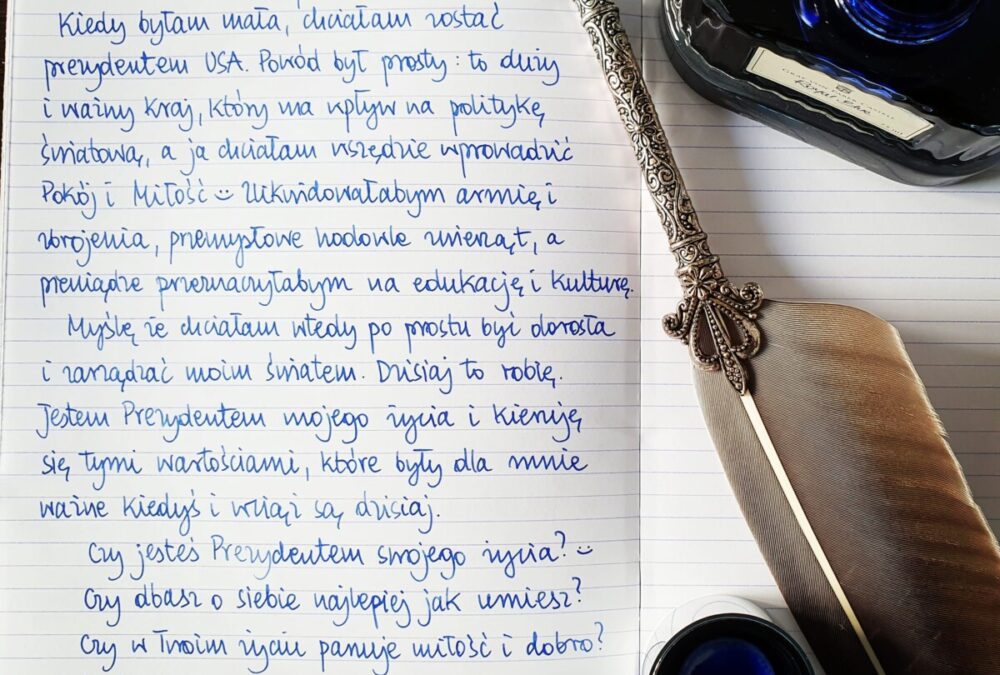 Kiedy byłam mała, chciałam zostać
prezydentem USA. Powód był prosty: to duży
i ważny kraj, który ma wpływ na politykę
światową, a ja chciałam wszędzie wprowadzić
Pokój i Miłość ☺ Zlikwidowałabym armię i
zbrojenia, przemysłowe hodowle zwierząt, a
pieniądze przeznaczyłabym na edukację i kulturę.
Myślę że chciałam wtedy po prostu być dorosła
i zarządzać moim światem. Dzisiaj to robię.
Jestem Prezydentem mojego życia i kieruję
się tymi wartościami, które były dla mnie
ważne kiedyś i wciąż są dzisiaj.
Czy jesteś Prezydentem swojego życia? ☺
Czy dbasz o siebie najlepiej jak umiesz?
Czy w Twoim życiu panuje miłość i dobro?